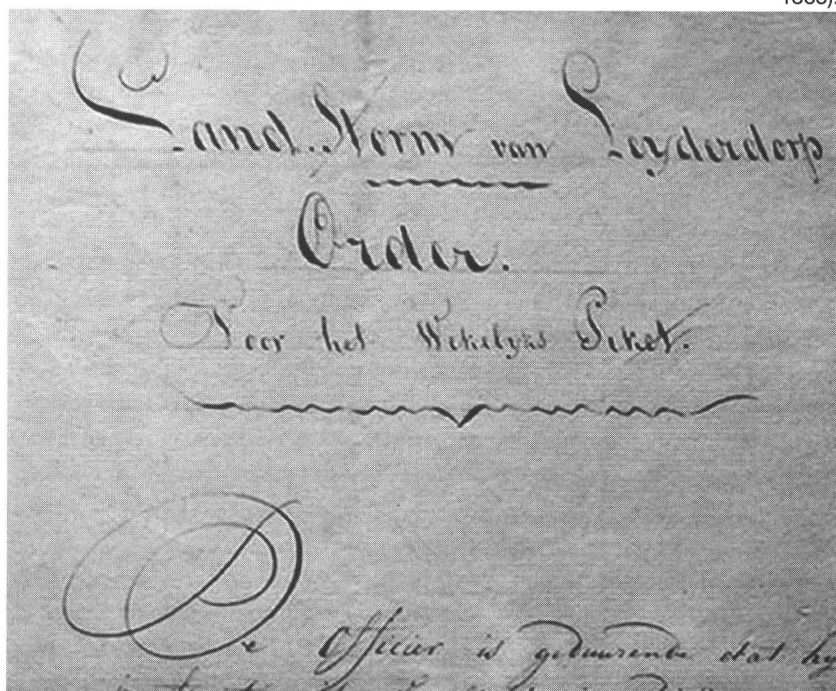 Land-Storm van Leyderdorp
Order.
Voor het Wekelyks Piket.
De Officier is geduurende dat hy